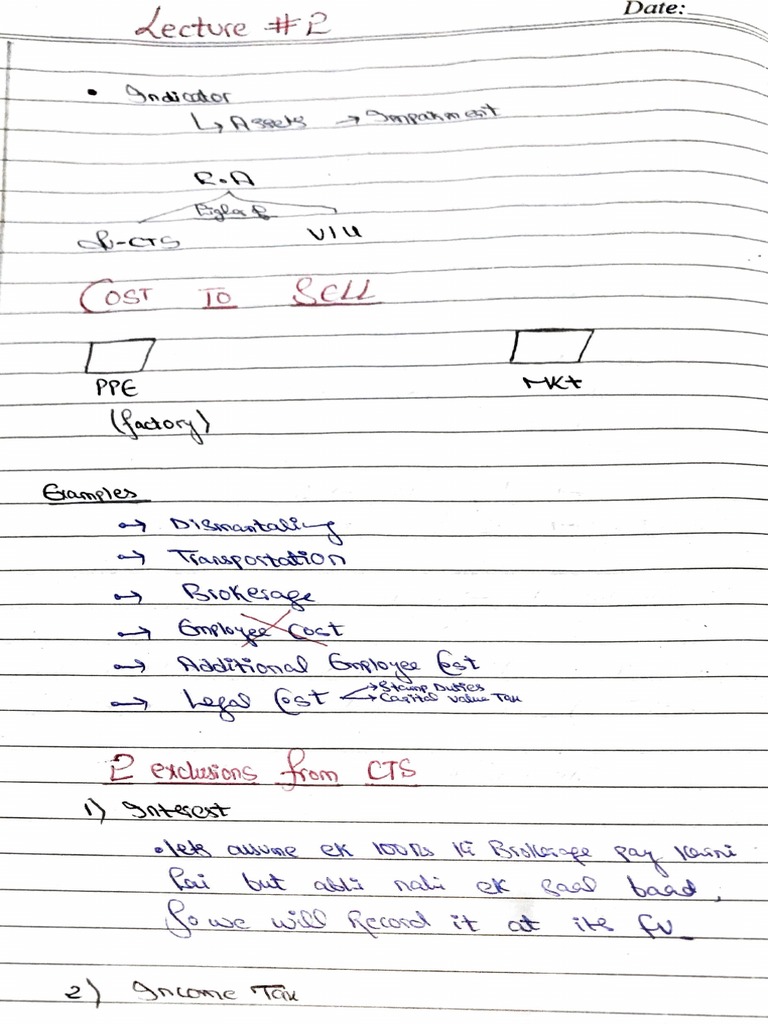 Date:
Lecture #2
• Indicator
↳ Assets → Impairment
R.A
Higher of
VIU
COST TO SELL
PPE MKt
(factory)
Examples
→ Dismantaling
→ Transportation
→ Brokerage
→ Employee Cost
→ Additional Employee Cost
→ Legal Cost → Stamp Duties
→ Capital Value Tax
2 exclusions from CTS
1) Interest
• lets assume ek 100Rs ki Brokerage pay karni
hai but abhi nahi ek saal baad,
So we will Record it at its FV
2) Income Tax